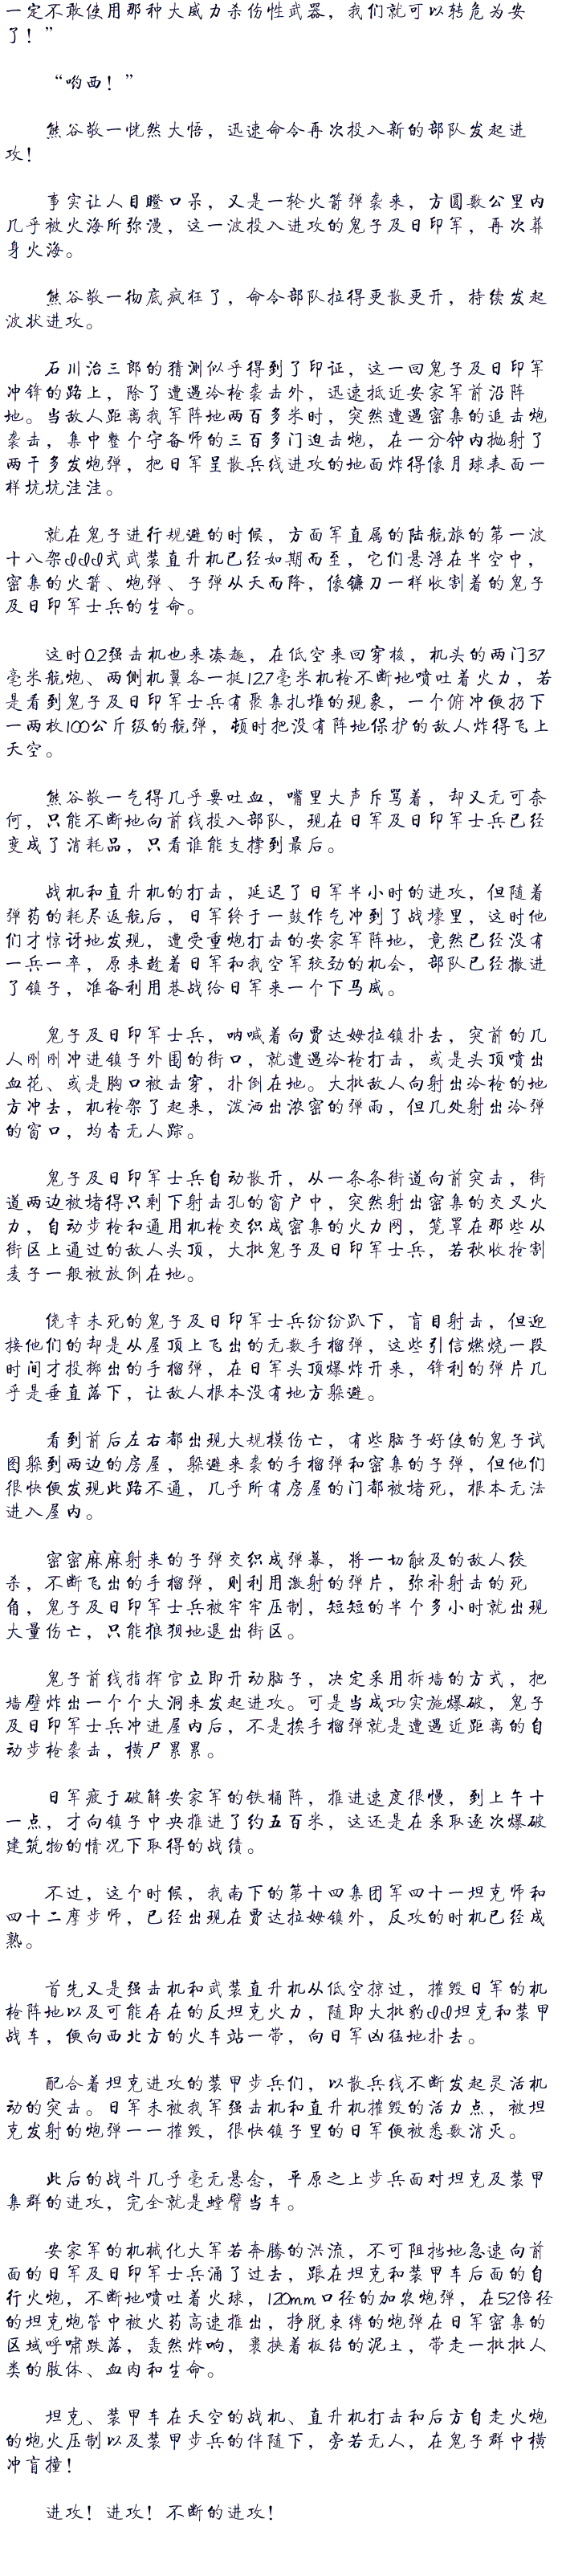 一定不敢使用那种大威力杀伤性武器，我们就可以转危为安
了！”
“哟西！”
熊谷敬一恍然大悟，迅速命令再次投入新的部队发起进
攻！
事实让人目瞪口呆，又是一轮火箭弹袭来，方圆数公里内
几乎被火海所弥漫，这一波投入进攻的鬼子及日印军，再次葬
身火海。
熊谷敬一彻底疯狂了，命令部队拉得更散更开，持续发起
波状进攻。
石川治三郎的猜测似乎得到了印证，这一回鬼子及日印军
冲锋的路上，除了遭遇冷枪袭击外，迅速抵近安家军前沿阵
地。当敌人距离我军阵地两百多米时，突然遭遇密集的迫击炮
袭击，集中整个守备师的三百多门迫击炮，在一分钟内抛射了
两千多发炮弹，把日军呈散兵线进攻的地面炸得像月球表面一
样坑坑洼洼。
就在鬼子进行规避的时候，方面军直属的陆航旅的第一波
十八架III式武装直升机已经如期而至，它们悬浮在半空中，
密集的火箭、炮弹、子弹从天而降，像镰刀一样收割着的鬼子
及日印军士兵的生命。
这时Q2强击机也来凑趣，在低空来回穿梭，机头的两门37
毫米航炮、两侧机翼各一挺12.7毫米机枪不断地喷吐着火力，若
是看到鬼子及日印军士兵有聚集扎堆的现象，一个俯冲便扔下
一两枚100公斤级的航弹，顿时把没有阵地保护的敌人炸得飞上
天空。
熊谷敬一气得几乎要吐血，嘴里大声斥骂着，却又无可奈
何，只能不断地向前线投入部队，现在日军及日印军士兵已经
变成了消耗品，只看谁能支撑到最后。
战机和直升机的打击，延迟了日军半小时的进攻，但随着
弹药的耗尽返航后，日军终于一鼓作气冲到了战壕里，这时他
们才惊讶地发现，遭受重炮打击的安家军阵地，竟然已经没有
一兵一卒，原来趁着日军和我空军较劲的机会，部队已经撤进
了镇子，准备利用巷战给日军来一个下马威。
鬼子及日印军士兵，呐喊着向贾达姆拉镇扑去，突前的几
人刚刚冲进镇子外围的街口，就遭遇冷枪打击，或是头顶喷出
血花、或是胸口被击穿，扑倒在地。大批敌人向射出冷枪的地
方冲去，机枪架了起来，泼洒出浓密的弹雨，但几处射出冷弹
的窗口，均杳无人踪。
鬼子及日印军士兵自动散开，从一条条街道向前突击，街
道两边被堵得只剩下射击孔的窗户中，突然射出密集的交叉火
力，自动步枪和通用机枪交织成密集的火力网，笼罩在那些从
街区上通过的敌人头顶，大批鬼子及日印军士兵，若秋收抢割
麦子一般被放倒在地。
侥幸未死的鬼子及日印军士兵纷纷趴下，盲目射击，但迎
接他们的却是从屋顶上飞出的无数手榴弹，这些引信燃烧一段
时间才投掷出的手榴弹，在日军头顶爆炸开来，锋利的弹片几
乎是垂直落下，让敌人根本没有地方躲避。
看到前后左右都出现大规模伤亡，有些脑子好使的鬼子试
图躲到两边的房屋，躲避来袭的手榴弹和密集的子弹，但他们
很快便发现此路不通，几乎所有房屋的门都被堵死，根本无法
进入屋内。
密密麻麻射来的子弹交织成弹幕，将一切触及的敌人绞
杀，不断飞出的手榴弹，则利用激射的弹片，弥补射击的死
角，鬼子及日印军士兵被牢牢压制，短短的半个多小时就出现
大量伤亡，只能狼狈地退出街区。
鬼子前线指挥官立即开动脑子，决定采用拆墙的方式，把
墙壁炸出一个个大洞来发起进攻。可是当成功实施爆破，鬼子
及日印军士兵冲进屋内后，不是挨手榴弹就是遭遇近距离的自
动步枪袭击，横尸累累。
日军疲于破解安家军的铁桶阵，推进速度很慢，到上午十
一点，才向镇子中央推进了约五百米，这还是在采取逐次爆破
建筑物的情况下取得的战绩。
不过，这个时候，我南下的第十四集团军四十一坦克师和
四十二摩步师，已经出现在贾达拉姆镇外，反攻的时机已经成
熟。
首先又是强击机和武装直升机从低空掠过，摧毁日军的机
枪阵地以及可能存在的反坦克火力，随即大批豹II坦克和装甲
战车，便向西北方的火车站一带，向日军凶猛地扑去。
配合着坦克进攻的装甲步兵们，以散兵线不断发起灵活机
动的突击。日军未被我军强击机和直升机摧毁的活力点，被坦
克发射的炮弹一一摧毁，很快镇子里的日军便被悉数消灭。
此后的战斗几乎毫无悬念，平原之上步兵面对坦克及装甲
集群的进攻，完全就是螳臂当车。
安家军的机械化大军若奔腾的洪流，不可阻挡地急速向前
面的日军及日印军士兵涌了过去，跟在坦克和装甲车后面的自
行火炮，不断地喷吐着火球，120mm口径的加农炮弹，在52倍径
的坦克炮管中被火药高速推出，挣脱束缚的炮弹在日军密集的
区域呼啸跌落，轰然炸响，裹挟着板结的泥土，带走一批批人
类的肢体、血肉和生命。
坦克、装甲车在天空的战机、直升机打击和后方自走火炮
的炮火压制以及装甲步兵的伴随下，旁若无人，在鬼子群中横
冲直撞！
进攻！进攻！不断的进攻！